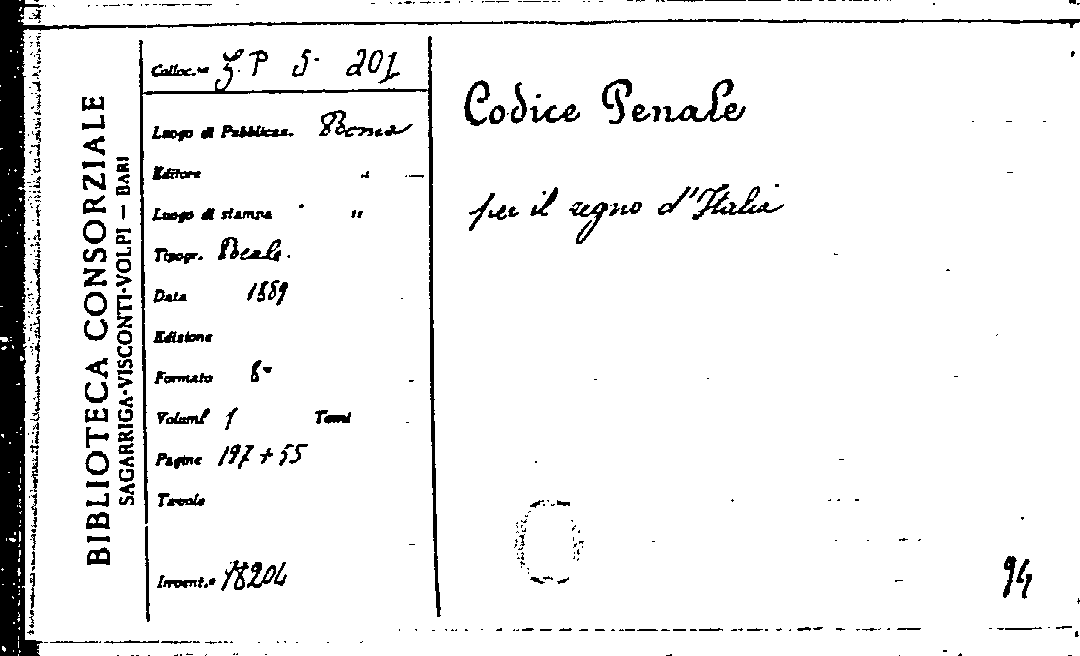 BIBLIOTECA CONSORZIALE
SAGARRIGA-VISCONTI-VOLPI — BARI
Colloc.ne 5. 201
Luogo di Pubblicaz. Roma
Editore " —
Luogo di stampa "
Tipogr. Reale.
Data 1889
Edizione
Formato 8°
Volumi 1 Tomi
Pagine 197 + 55
Tavole
Invent.o 78204
Codice Penale
per il regno d'Italia
94